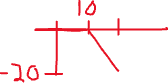 10
-20